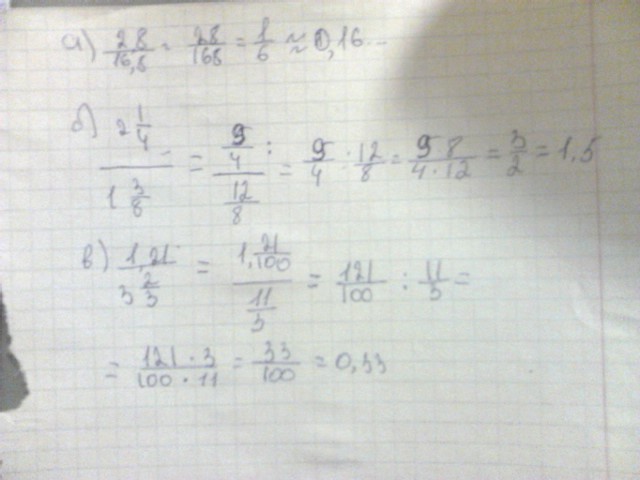 а) 2,8/16,8 = 28/168 = 1/6 ≈ 0,16...
б) 2 1/4 / 1 3/8 = 9/4 : / 12/8 = 9/4 : 12/8 = 9 8/4 · 12 = 3/2 = 1,5
в) 1,21 / 3 2/3 = 1, 21/100 / 11/3 = 121/100 : 11/3 =
= 121 · 3/100 · 11 = 33/100 = 0,33